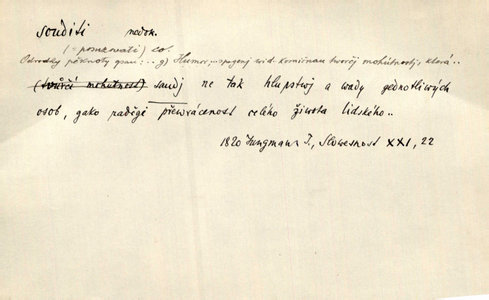 souditi nedok.
(= posuzovati) co.
Odrodky pěknoty gsau: .. g) Humor, .. spogený wid. komičnau tworčj mohútnostj, která ..
(twůrčí mohútnost) saudj ne tak hlupstwj a wady gednotliwých
osob, gako raděgi přewrácenost celého žiwota lidského ..
1820 Jungmann J., Slowesnost XXI, 22